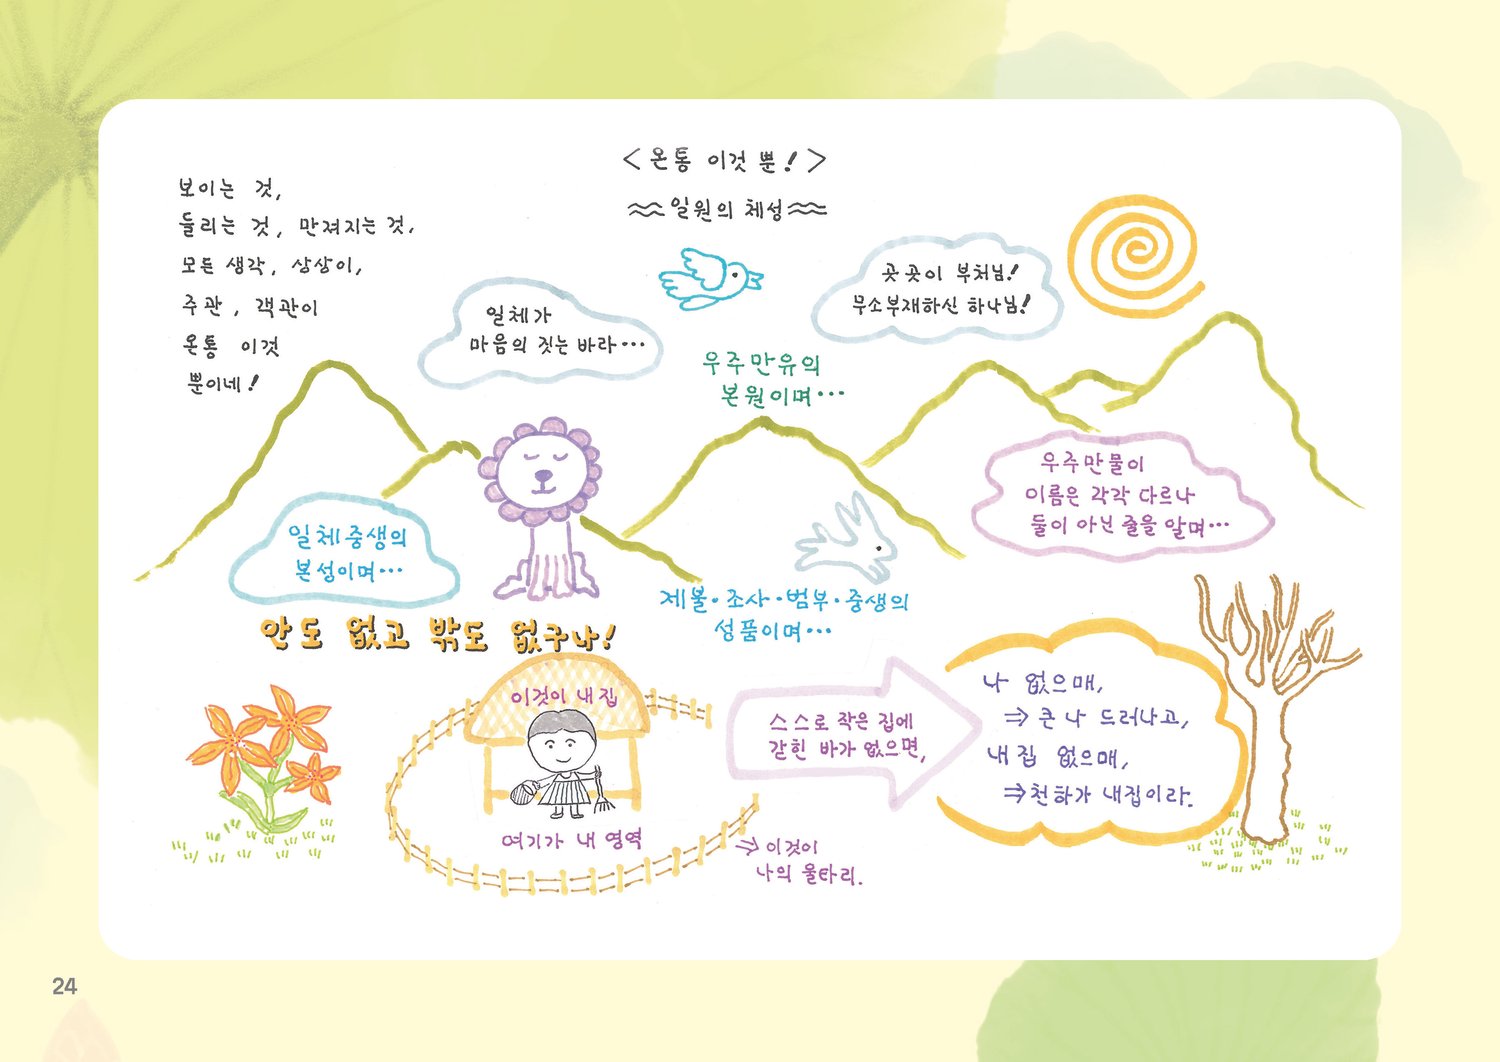 < 온통 이것 뿐! >
≈ 일원의 체성 ≈
보이는 것,
들리는 것, 만져지는 것,
모든 생각, 상상이,
주관, 객관이
온통 이것
뿐이네!
일체가
마음의 짓는 바라···
곳곳이 부처님!
무소부재하신 하나님!
우주만유의
본원이며···
우주만물이
이름은 각각 다르나
둘이 아닌 줄을 알며···
일체중생의
본성이며···
제불·조사··범부·중생의
성품이며···
안도 없고 밖도 없구나!
이것이 내 집
여기가 내 영역
⇒ 이것이
나의 울타리.
스스로 작은 집에
갇힌 바가 없으면,
나 없으매,
⇒ 큰 나 드러나고,
내 집 없으매,
⇒ 천하가 내집이라.
24